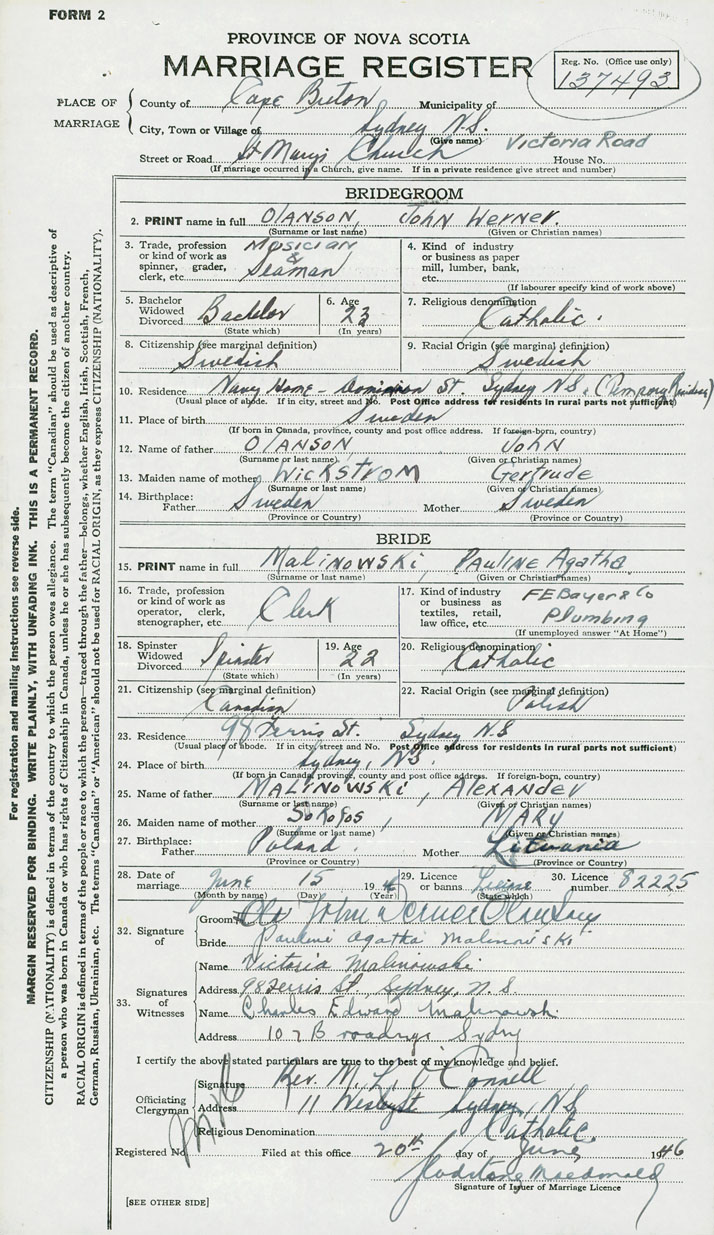 FORM 2
PROVINCE OF NOVA SCOTIA
MARRIAGE REGISTER
Reg. No. (Office use only)
137493
PLACE OF MARRIAGE
County of Cape Breton Municipality of
City, Town or Village of Sydney N.S.
(Give name)
Street or Road St Mary's Church Victoria Road House No.
(If marriage occurred in a Church, give name. If in a private residence give street and number)
BRIDEGROOM
2. PRINT name in full OLANSON, John Werner.
(Surname or last name) (Given or Christian names)
3. Trade, profession or kind of work as spinner, grader, clerk, etc. Musician & Seaman
4. Kind of industry or business as paper mill, lumber, bank, etc.
(If labourer specify kind of work above)
5. Bachelor Widowed Divorced Bachelor
(State which)
6. Age 23
(In years)
7. Religious denomination Catholic.
8. Citizenship (see marginal definition) Swedish
9. Racial Origin (see marginal definition) Swedish
10. Residence Navy Home - Dominion St. Sydney N.S.
(Usual place of abode. If in city, street and No. Post Office address for residents in rural parts not sufficient)
11. Place of birth Sweden
(If born in Canada, province, county and post office address. If foreign-born, country)
12. Name of father OLANSON John
(Surname or last name) (Given or Christian names)
13. Maiden name of mother WICKSTROM Gertrude
(Surname or last name) (Given or Christian names)
14. Birthplace: Father Sweden Mother Sweden
(Province or Country) (Province or Country)
BRIDE
15. PRINT name in full MALINOWSKI, PAULINE Agatha
(Surname or last name) (Given or Christian names)
16. Trade, profession or kind of work as operator, clerk, stenographer, etc. Clerk
17. Kind of industry or business as textiles, retail, law office, etc. Plumbing
(If unemployed answer "At Home")
18. Spinster Widowed Divorced Spinster
(State which)
19. Age 22
(In years)
20. Religious denomination Catholic
21. Citizenship (see marginal definition) Canadian
22. Racial Origin (see marginal definition) Polish
23. Residence 98 Ferris St. Sydney N.S
(Usual place of abode. If in city, street and No. Post Office address for residents in rural parts not sufficient)
24. Place of birth Sydney, N.S.
(If born in Canada, province, county and post office address. If foreign-born, country)
25. Name of father MALINOWSKI, ALEXANDER
(Surname or last name) (Given or Christian names)
26. Maiden name of mother MARY
(Surname or last name) (Given or Christian names)
27. Birthplace: Father Poland. Mother Lituania
(Province or Country) (Province or Country)
28. Date of marriage June 15 194
(Month by name) (Day) (Year)
29. Licence or banns License
(State which)
30. Licence number 82225
32. Signature of
Groom John
Bride Pauline Agatha Malinowski
33. Signatures of Witnesses
Name Victoria Malinowski
Address 98 Ferris St. Sydney, N.S.
Name Charles Edward Malinowski
Address 107 Broadway Sydney
I certify the above stated particulars are true to the best of my knowledge and belief.
Officiating Clergyman
Signature Rev. M. L. O'Connell
Address 11 Wesley St Sydney, N.S.
Religious Denomination Catholic.
Registered No. Filed at this office 20th day of June 1946
Macdonald
Signature of Issuer of Marriage Licence
[SEE OTHER SIDE]
For registration and mailing instructions see reverse side.
MARGIN RESERVED FOR BINDING. WRITE PLAINLY, WITH UNFADING INK. THIS IS A PERMANENT RECORD.
CITIZENSHIP (NATIONALITY) is defined in terms of the country to which the person owes allegiance. The term "Canadian" should be used as descriptive of
a person who was born in Canada or who has rights of Citizenship in Canada, unless he or she has subsequently become the citizen of another country.
RACIAL ORIGIN is defined in terms of the people or race to which the person—traced through the father—belongs, whether English, Irish, Scottish, French,
German, Russian, Ukrainian, etc. The terms "Canadian" or "American" should not be used for RACIAL ORIGIN, as they express CITIZENSHIP (NATIONALITY).